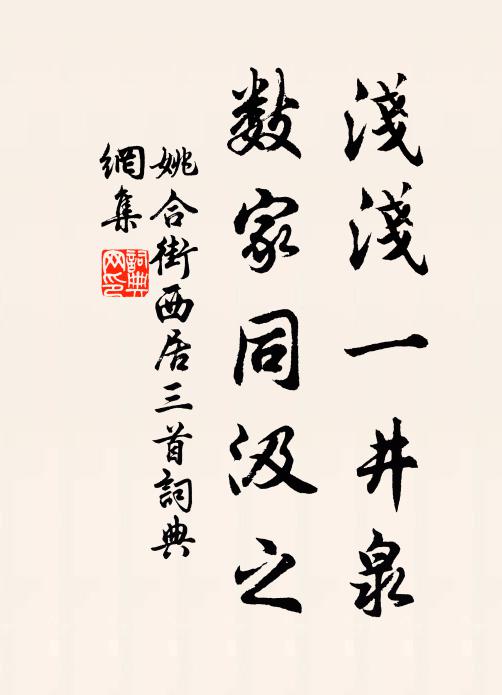 淺淺一井泉
数家同汲之
姚合街西居三首詞典
網集
詞典
网印